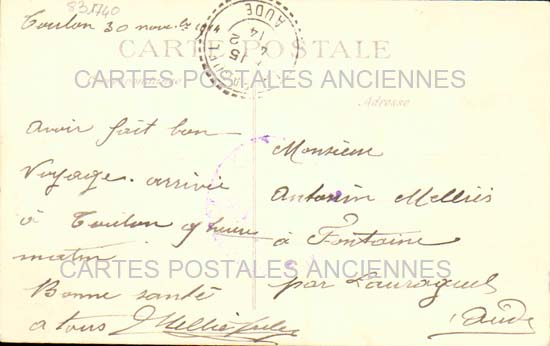 83740
Toulon 30 nov
AUDE
15
2
14
CARTE POSTALE
CARTES POSTALES ANCIENNES
Correspondance
Adresse
avoir fait bon
Voyage. arrivée
à Toulon 9 heures
matin
Bonne santé
a tous
Monsieur
Antonin Melliès
à Fontaine
par Lauraguel
Aude
CARTES POSTALES ANCIENNES